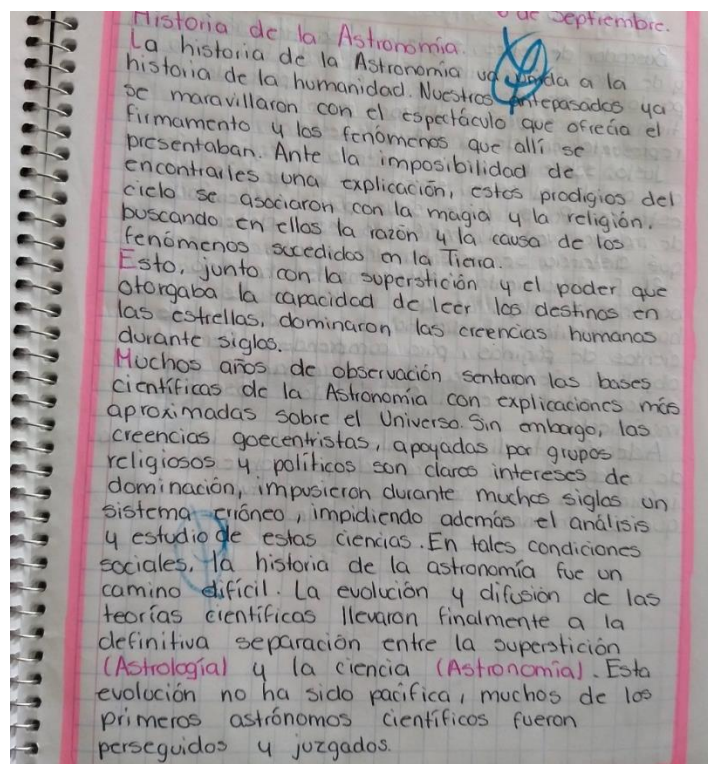 de Septiembre.
Historia de la Astronomía.
La historia de la Astronomía va unida a la
historia de la humanidad. Nuestros antepasados ya
se maravillaron con el espectáculo que ofrecía el
firmamento y los fenómenos que allí se
presentaban. Ante la imposibilidad de
encontrarles una explicación, estos prodigios del
cielo se asociaron con la magia y la religión,
buscando en ellos la razón y la causa de los
fenómenos sucedidos en la Tierra.
Esto, junto con la superstición y el poder que
otorgaba la capacidad de leer los destinos en
las estrellas, dominaron las creencias humanas
durante siglos.
Muchos años de observación sentaron las bases
científicas de la Astronomía con explicaciones más
aproximadas sobre el Universo. Sin embargo, las
creencias goecentristas, apoyadas por grupos
religiosos y políticos son claros intereses de
dominación, impusieron durante muchos siglos un
sistema erróneo, impidiendo además el análisis
y estudio de estas ciencias. En tales condiciones
sociales, la historia de la astronomía fue un
camino difícil. La evolución y difusión de las
teorías científicas llevaron finalmente a la
definitiva separación entre la superstición
(Astrología) y la ciencia (Astronomía). Esta
evolución no ha sido pacífica, muchos de los
primeros astrónomos científicos fueron
perseguidos y juzgados.